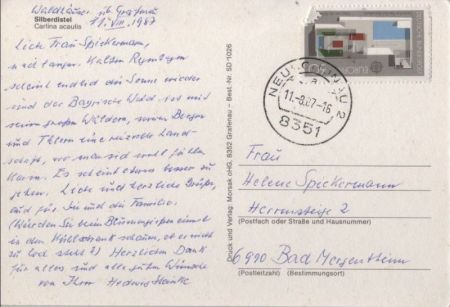 Waldhäuser üb. Grafenau
Silberdistel
Cartina acaulis
11. VIII. 1987
Liebe Frau Spickermann,
nach langen kalten Regentagen
scheint endlich die Sonne wieder
und der Bayrische Wald ist mit
seinen großen Wäldern, seinen Bergen
und Tälern eine reizvolle Land-
schaft, wo man sich wohl fühlen
kann. Es scheint etwas besser zu
gehen. Liebe und herzliche Grüße,
auch für Sie und die Familie.
(Würden Sie beim Blumengießen einmal
in den Kühlschrank schauen, ob er nicht
zu kalt steht?) Herzlichen Dank
für alles und alle guten Wünsche
von Ihrer Hedwig
Druck und Verlag: Morsak oHG, 8352 Grafenau – Best.-Nr. SD 1026
NEUSCHÖNAU 2
11.-8.87-16
8351
Frau
Helene Spickermann
Herrenstraße 2
(Postfach oder Straße und Hausnummer)
6990 Bad Mergentheim
(Postleitzahl) (Bestimmungsort)